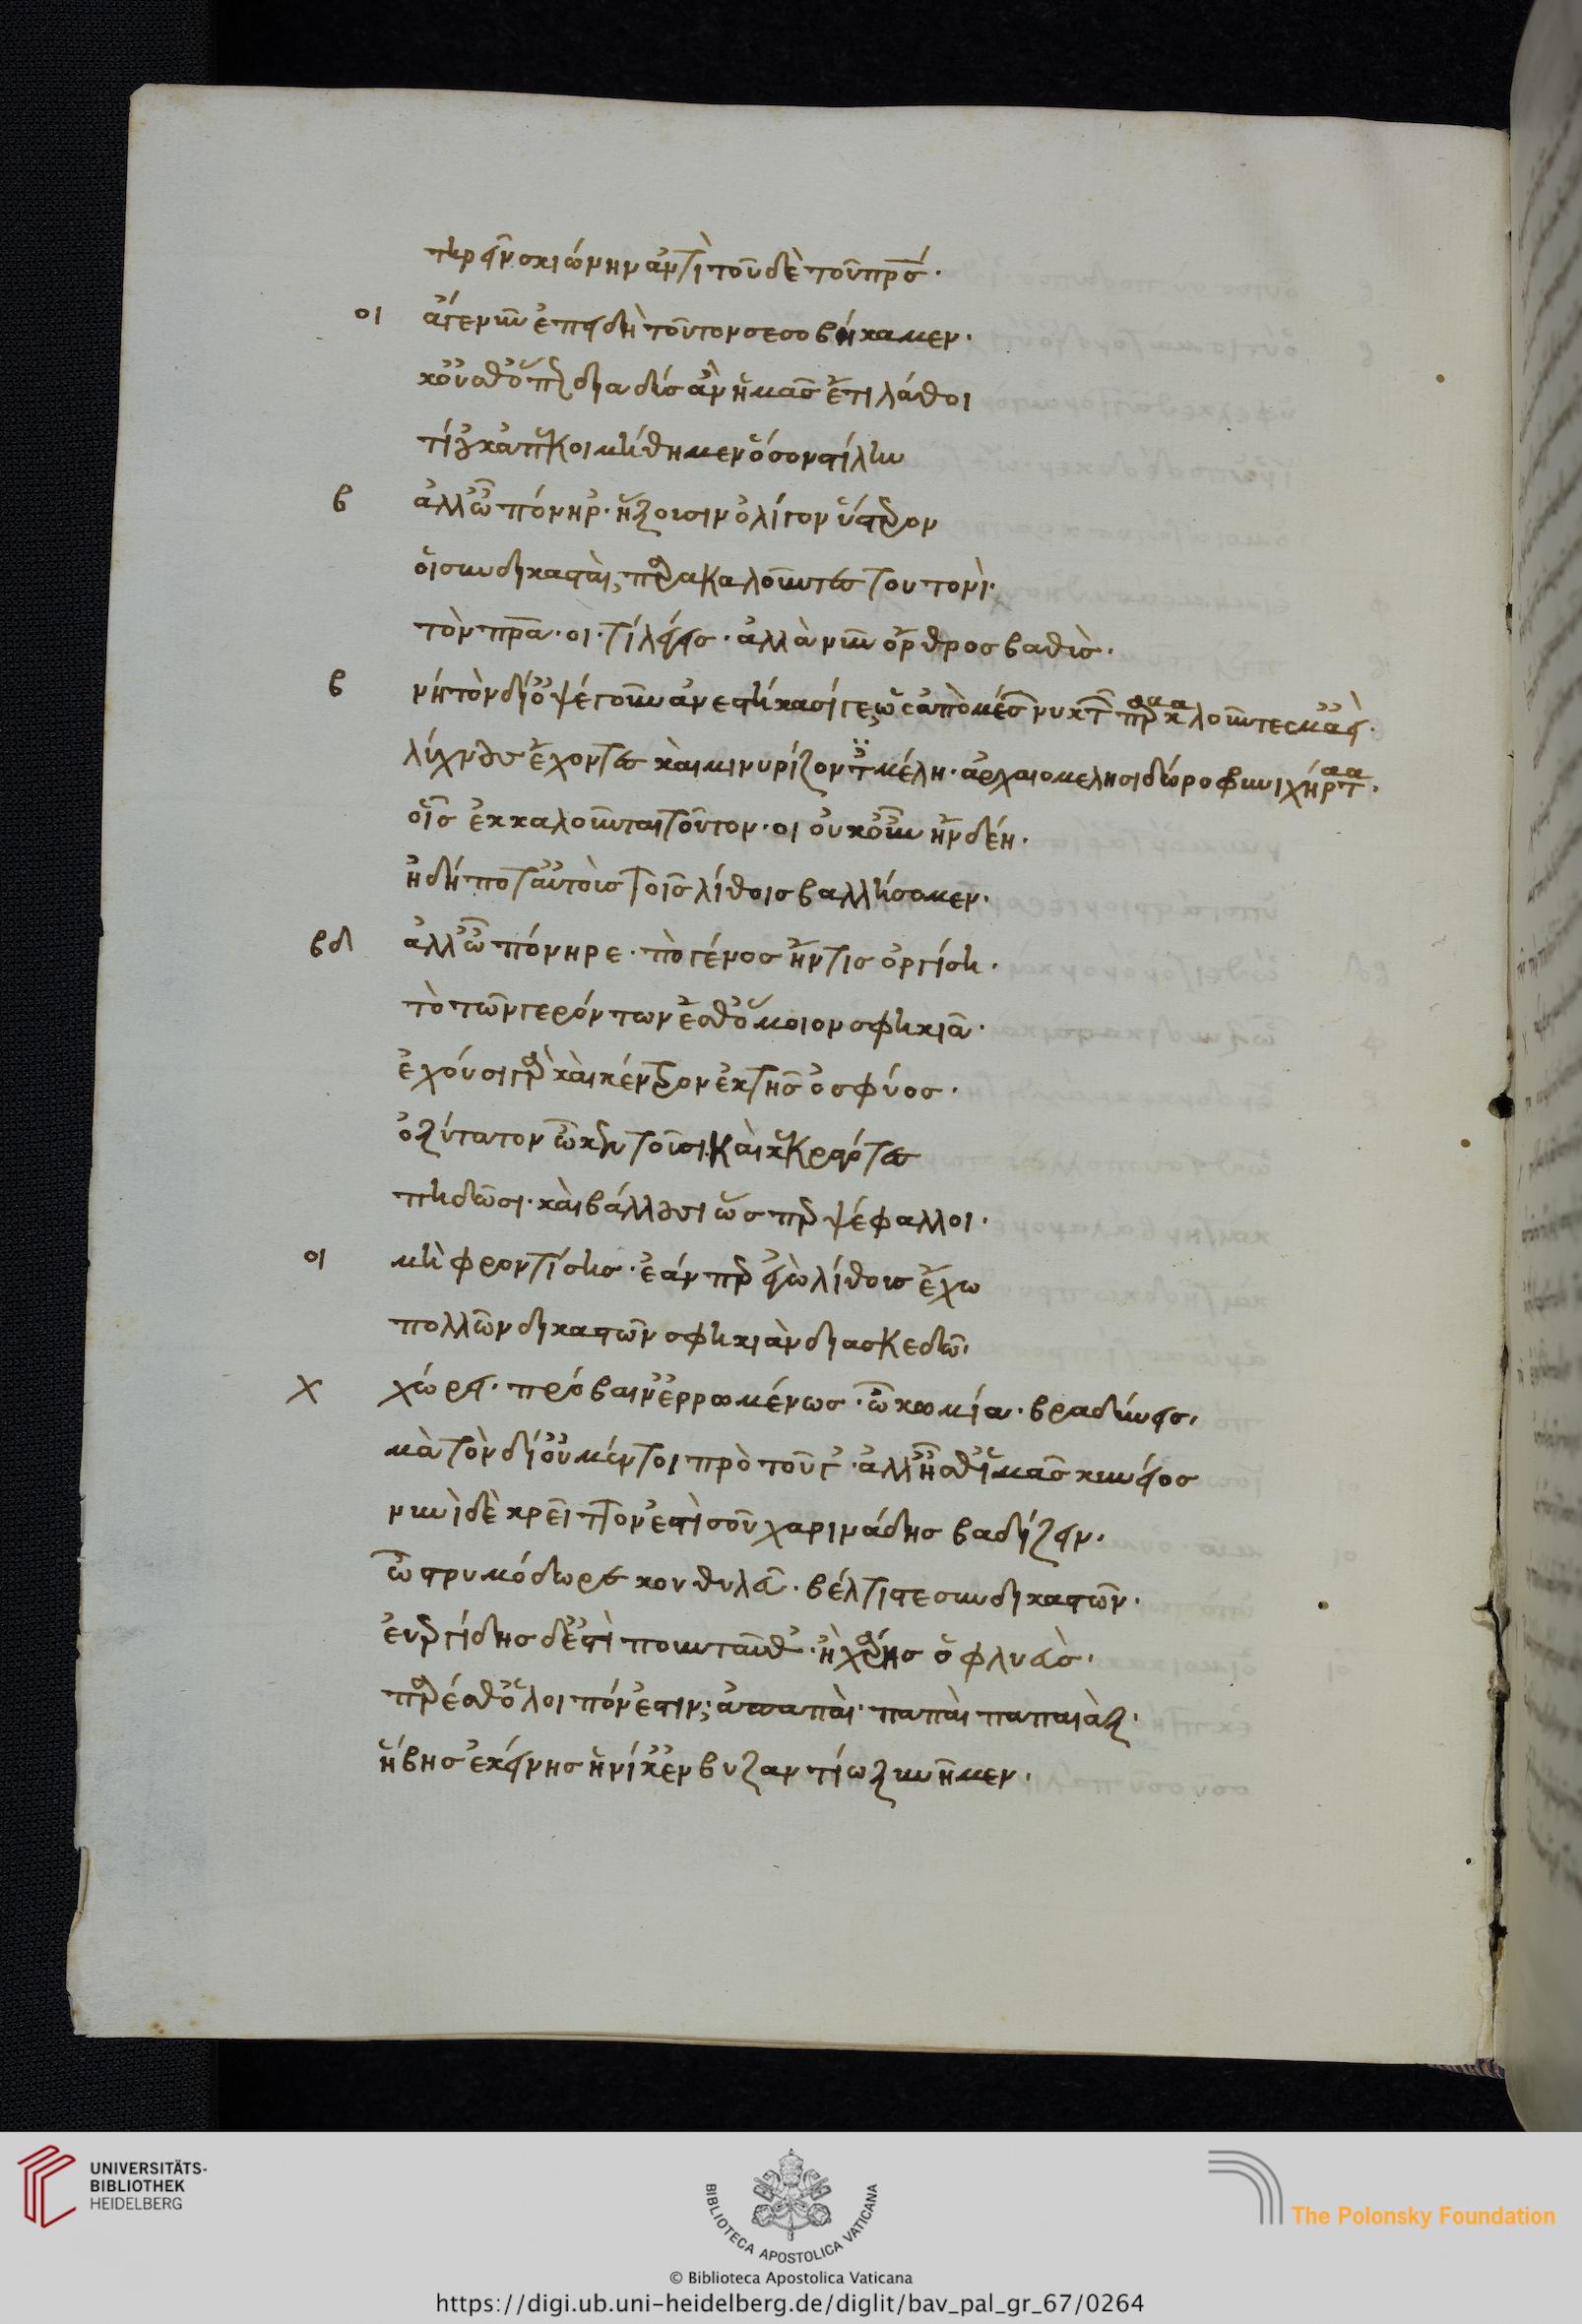 τηρεῖν σκιώνην ἀντὶ τοῦδε τοῦ πρσ́.
οι ἄγε νῦν ἐπειδὴ τοῦτον σεσοβήκαμεν.
κοὐκ ἔσθ' ὅπ διαδὺσ ἂν ἡμᾶσ ἔτι λάθοι
τί οὐκ ἀπεκοιμήθημεν ὅσον στίλην
β ἀλλ' ὦ πόνηρ'. ἥξουσιν ὀλίγον ὕστερον
οἱ συνδικασταὶ, παρακαλοῦντεσ τουτονὶ.
τὸν πρα. οι. τί λέγεισ. ἀλλὰ νῦν ὄρθροσ βαθὺσ.
β νὴ τὸν δί' ὀψὲ γοῦν ἀνεστήκασί γε, ὡσ ἀπὸ μέσ νυκτ παρακλοῦντεσ μ' ἀεὶ.
λύχνουσ ἔχοντεσ καὶ μινυρίζοντ μέλη. ἀρχαιομελησιδωροφρυνιχήρτ.
οἷσ ἐκκαλοῦνται τοῦτον. οι οὐκοῦν ἢν δέῃ.
ἤδη ποτ' αὐτοὺσ τοῖσ λίθοισ βαλλήσομεν.
βδ ἀλλ' ὦ πόνηρε. τὸ γένοσ ἤν τισ ὀργίσῃ.
τὸ τῶν γερόντων ἔσθ' ὅμοιον σφηκιᾶ.
ἔχουσι γὰρ καὶ κέντρον ἐκ τῆσ ὀσφύοσ.
ὀξύτατον ὧ κεντοῦσι. καὶ κεκραγότεσ
πηδῶσι. καὶ βάλλουσι ὥσπερ ψέφαλλοι.
οι μὴ φροντίσησ. ἐάνπερ ἐγὼ λίθουσ ἔχω
πολλῶν δικαστῶν σφηκιὰν διασκεδῶ.
χ χώρει. πρόβαιν' ἐρρωμένωσ. ὦ κωμία. βραδύνεισ.
μὰ τὸν δί' οὐ μέντοι πρὸ τοῦ γ'. ἀλλ' ἦσθ' ἱμᾶσ κυνεῖοσ
νυνὶ δὲ κρεῖττον ἐστὶ σοῦ χαρινάδησ βαδίζειν.
ὦ στρυμόδωρε κονθυλεῦ. βέλτιστε συνδικαστῶν.
εὐεργίδησ δ' ἐστὶ που 'νταῦθ'. ἢ χάβησ ὁ φλυεὺσ.
πάρεσθ' ὃ λοιπόν ἐστιν; ἀππαπαὶ. παπαὶ παπαιὰξ.
ἥβησ ἐκείνησ ἡνίκ' ἐν βυζαντίω ξυνῆμεν.
UNIVERSITÄTS-
BIBLIOTHEK
HEIDELBERG
BIBLIOTECA APOSTOLICA VATICANA
The Polonsky Foundation
© Biblioteca Apostolica Vaticana
https://digi.ub.uni-heidelberg.de/diglit/bav_pal_gr_67/0264